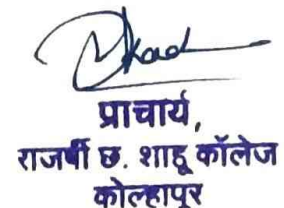 प्राचार्य,
राजर्षी छ. शाहू कॉलेज
कोल्हापूर